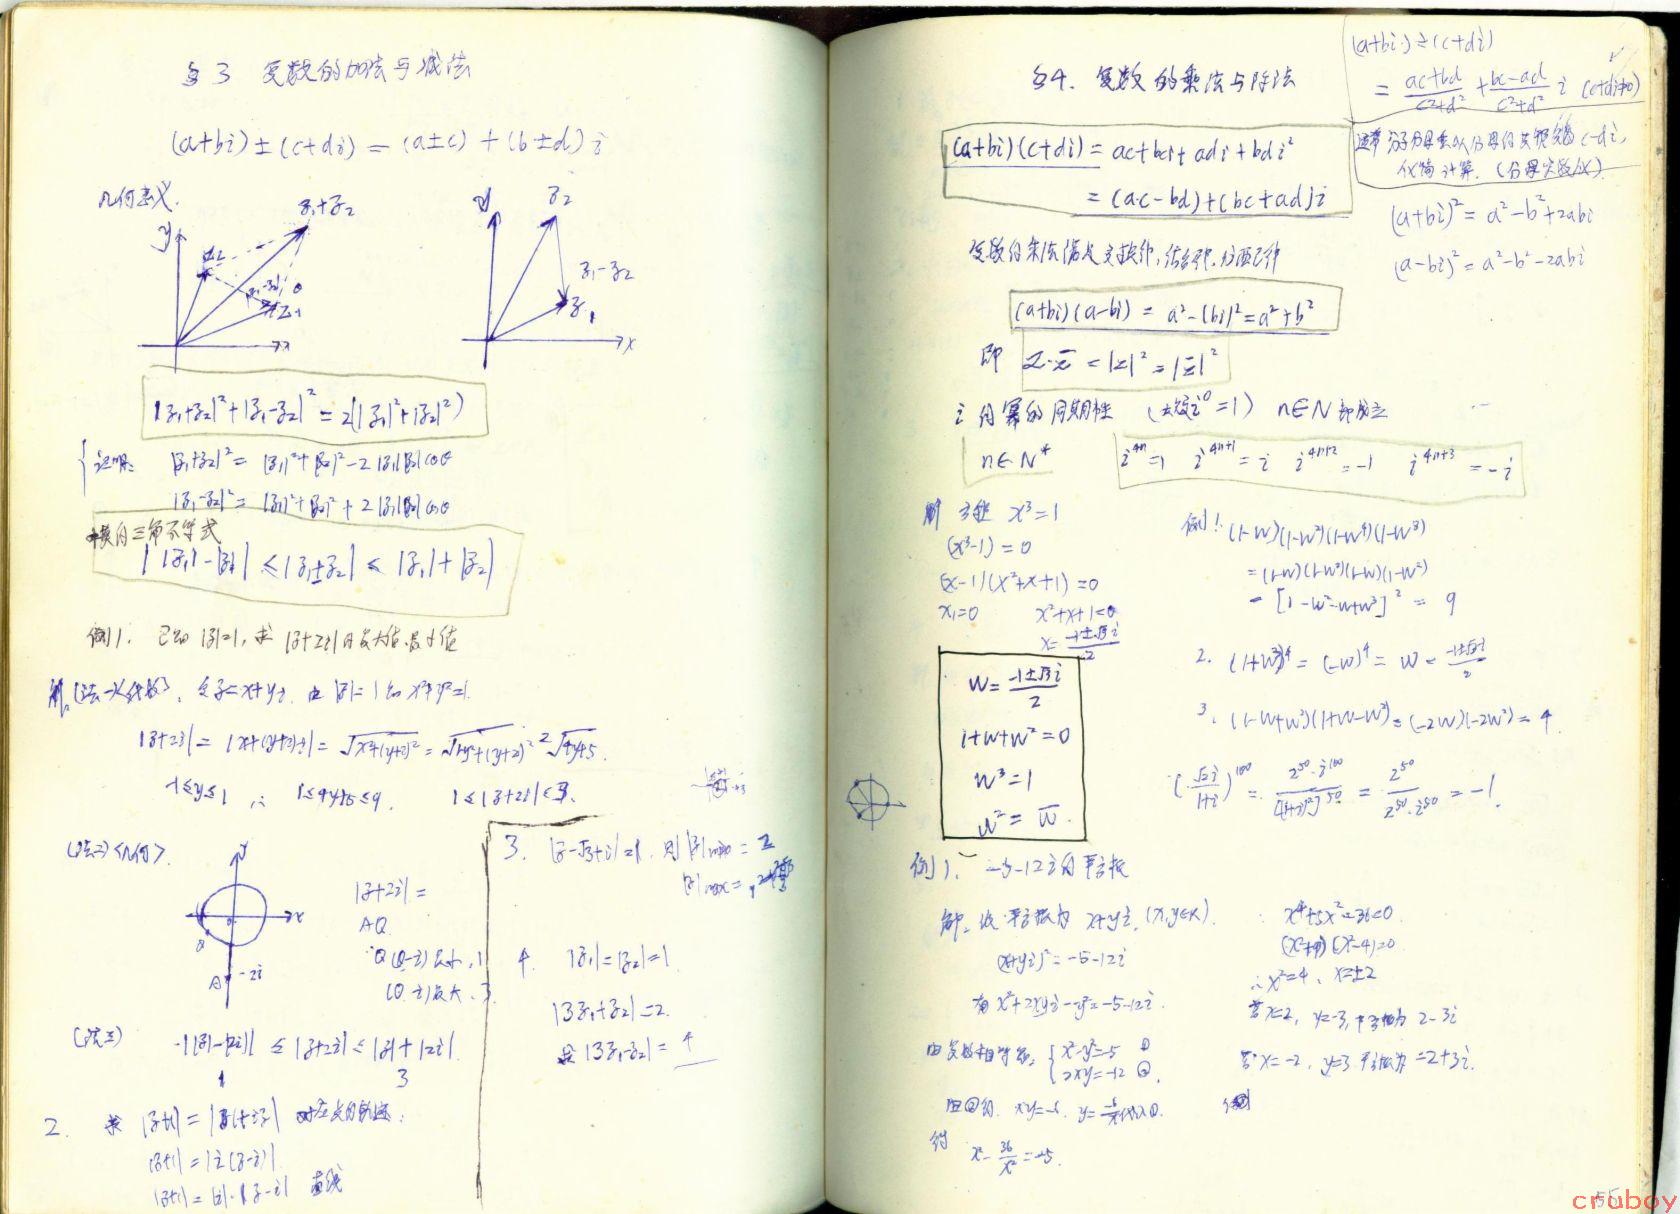 §3 复数的加法与减法
(a+bi)±(c+di) = (a±c) + (b±d) i
几何意义.
y
z₁+z₂
z₂
z₁-z₂
θ
z₁
x
y
z₂
z₁-z₂
z₁
x
|z₁+z₂|²+|z₁-z₂|² = 2(|z₁|²+|z₂|²)
证明: |z₁+z₂|² = |z₁|²+|z₂|²-2|z₁||z₂|cosθ
|z₁-z₂|² = |z₁|²+|z₂|²+2|z₁||z₂|cosθ
模的三角不等式
||z₁|-|z₂|| ≤ |z₁±z₂| ≤ |z₁|+|z₂|
例1. 已知|z|=1, 求|z+2i|的最大值.最小值
解.(法一)<代数>, 令z=x+yi. 由|z|=1知x²+y²=1.
|z+2i| = |x+(y+2)i| = √x²+(y+2)² = √1-y²+(y+2)² = √4y+5.
-1≤y≤1 ∴ 1≤4y+5≤9. 1≤|z+2i|≤3.
(法二)<几何>.
y
x
Q
A -2i
|z+2i| =
AQ
Q(0-i)最小, 1
(0, i)最大, 3
(法三) ||z|-|2i|| ≤ |z+2i| ≤ |z|+|2i|.
1 3
2. 求 |z+1| = |1+iz| 对应点的轨迹.
|z+1| = |i(z-i)|
|z+1| = |i|·|z-i| 直线
3. |z-√3+i|=1, 则|z|min =
|z|max =
4. |z₁|=|z₂|=1
|3z₁+z₂|=2.
求|3z₁-z₂| = 4
§4. 复数的乘法与除法
(a+bi)÷(c+di)
= ac+bd/c²+d² + bc-ad/c²+d² i (c+di≠0)
通常分子分母乘以分母的共轭复数c-di,
以简计算. (分母实数化)
(a+bi)(c+di) = ac+bci+adi+bdi²
= (ac-bd)+(bc+ad)i
(a+bi)² = a²-b²+2abi
(a-bi)² = a²-b²-2abi
复数的乘法满足交换律,结合律.分配律
(a+bi)(a-bi) = a²-(bi)²=a²+b²
即 z·z̄ = |z|² = |z̄|²
i的幂的周期性 (规定i⁰=1) n∈N 都成立
n∈N* i⁴ⁿ=1 i⁴ⁿ⁺¹=i i⁴ⁿ⁺²=-1 i⁴ⁿ⁺³=-i
解方程 x³=1
(x³-1)=0
(x-1)(x²+x+1)=0
x₁=0 x²+x+1=0
x= -1±√3i/2
w = -1±√3i/2
1+w+w²=0
w³=1
w² = w̄.
例1. (1-w)(1-w²)(1-w⁴)(1-w⁸)
=(1-w)(1-w²)(1-w)(1-w²)
= [1-w²-w+w³]² = 9
2. (1+w²)⁴ = (-w)⁴ = w = -1±√3i/2
3. (1-w+w²)(1+w-w²)=(-2w)(-2w²)=4.
(√2i/1+i)¹⁰⁰ = 2⁵⁰·i¹⁰⁰/[(1+i)²]⁵⁰ = 2⁵⁰/2⁵⁰·i⁵⁰ = -1.
例1. -5-12i的平方根
解, 设平方根为 x+yi, (x,y∈R).
(x+yi)² = -5-12i
有 x²+2xyi-y²=-5-12i.
由复数相等得, { x²-y²=-5 ①
2xy=-12 ②.
由②得. xy=-6. y=-6/x代入①.
得 x²-36/x²=-5.
x⁴+5x²-36=0.
(x²+9)(x²-4)=0
∴x²=4, x=±2
若x=2, y=-3, 平方根为 2-3i
若x=-2, y=3 平方根为 -2+3i.
55
cruboy